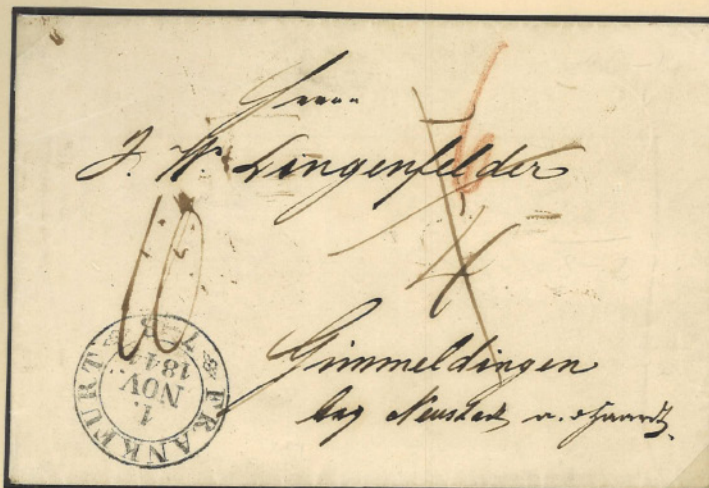 Herrn
J. W. Lingenfelder
6
4
10
Gimmeldingen
bey Neustadt a. Haardt
FRANKFURT
1.
NOV.
7-8